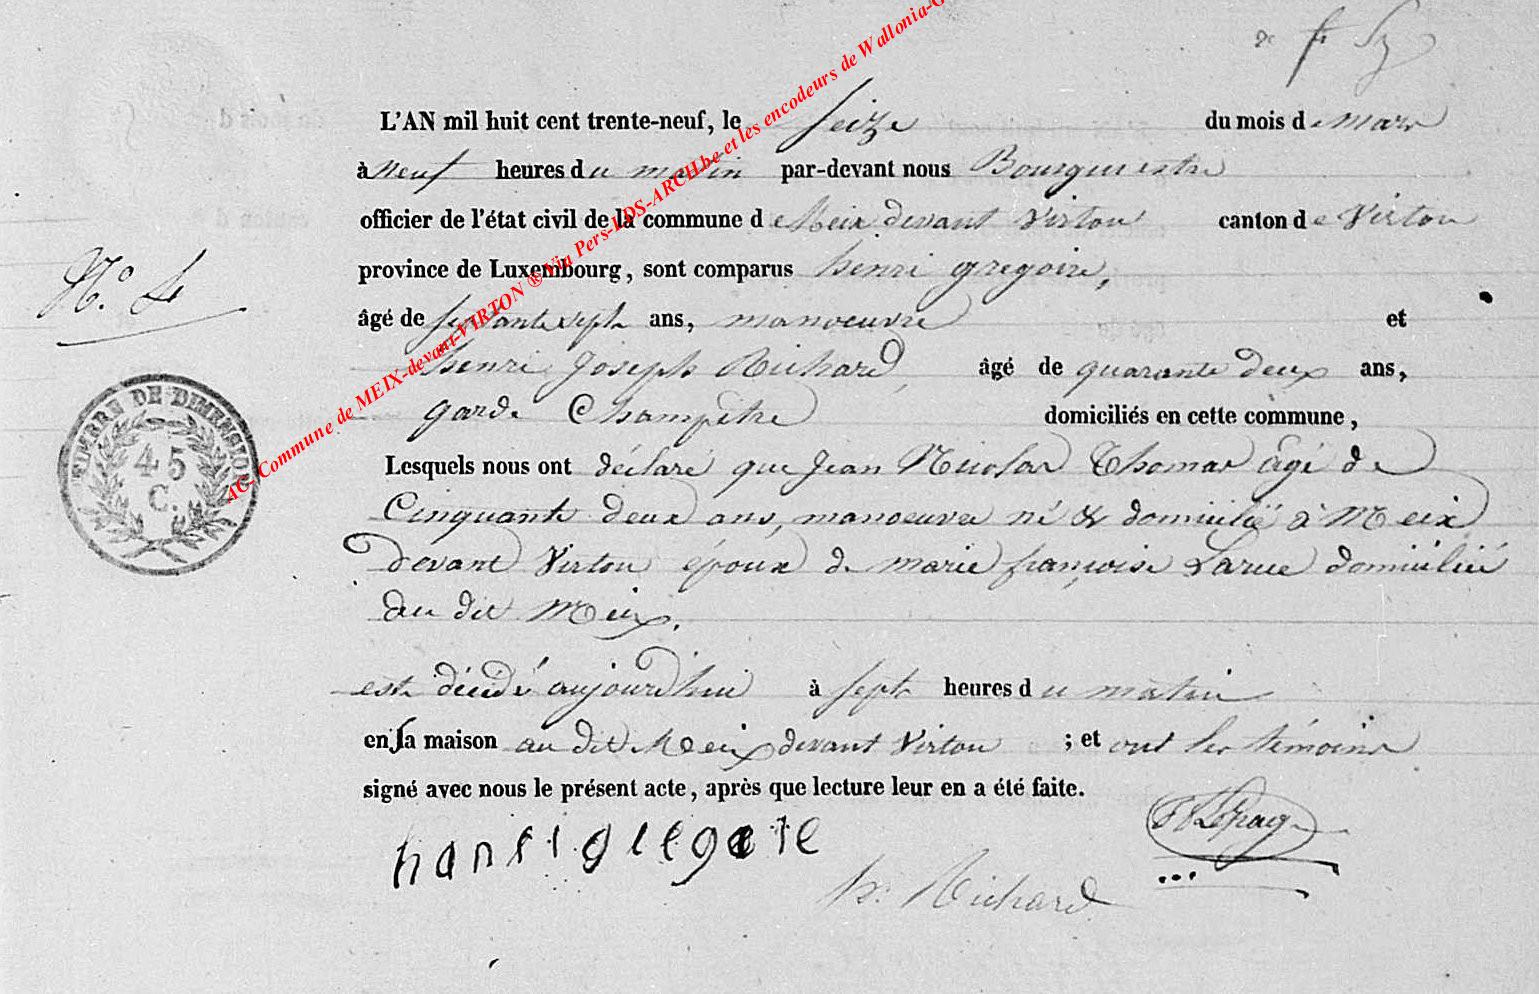 L'AN mil huit cent trente-neuf, le Seize du mois de mars
à Neuf heures du matin par-devant nous Bourguestre
officier de l'état civil de la commune de Meix devant Virton canton de Virton
province de Luxembourg, sont comparus henri gregoire,
N.º
âgé de septante sept ans, manoeuvre et
henri Joseph Richard, âgé de quarante deux ans,
garde Champêtre domiciliés en cette commune,
TIMBRE DE DIMENSION
45
C.
Lesquels nous ont déclaré que Jean Nicolas Thomas âgé de
Cinquante deux ans, manoeuvre né & domicilié à Meix
devant Virton époux de marie françoise Larue domiciliée
au dit Meix.
est décédé aujourd'hui à sept heures du matin
en sa maison au dit Meix devant Virton ; et ont les témoins
signé avec nous le présent acte, après que lecture leur en a été faite.
hanri gregoire
h. Richard
AC Commune de MEIX-devant-VIRTON ® Via Pers-LDS-ARCH.be et les encodeurs de Wallonia-G